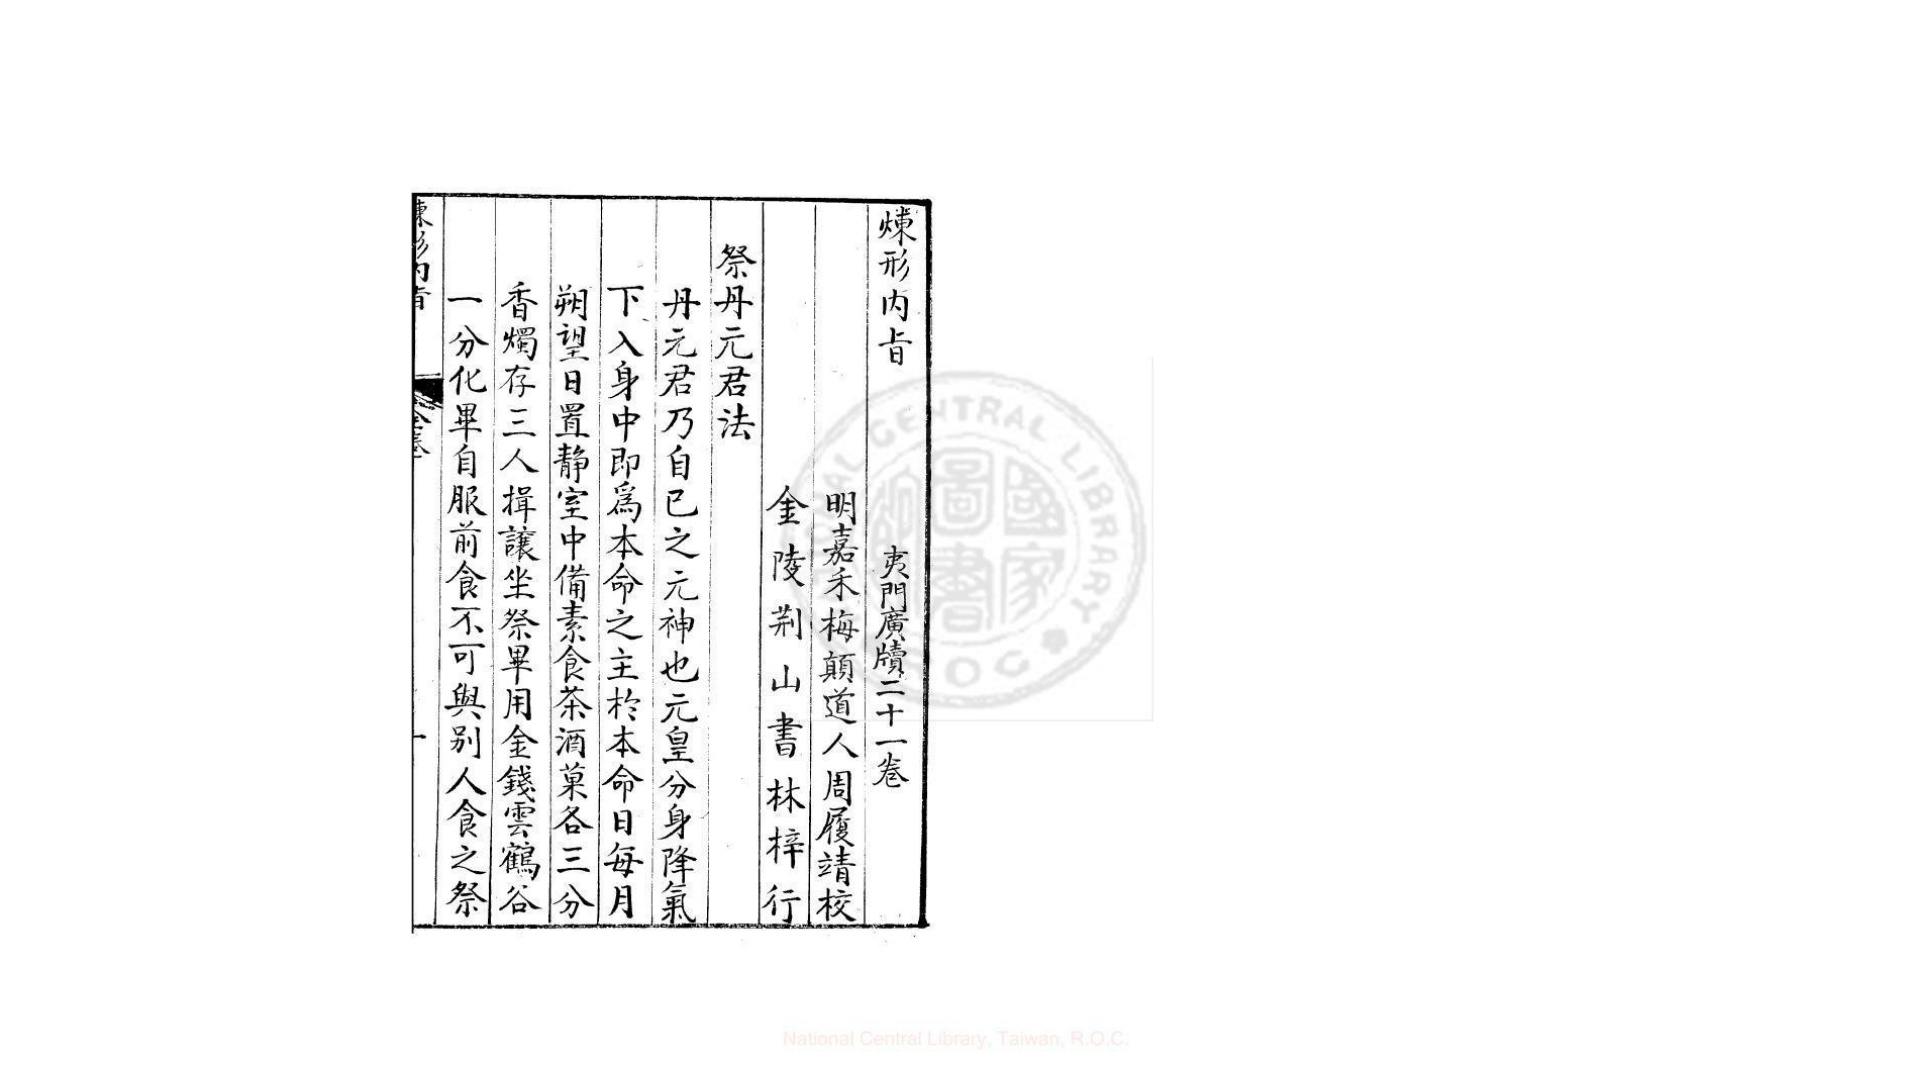 煉形内旨 夷門廣牘二十一卷
明嘉禾梅顛道人周履靖校
金陵荆山書林梓行
祭丹元君法
丹元君乃自已之元神也元皇分身降氣
下入身中即爲本命之主於本命日每月
朔望日置静室中備素食茶酒菓各三分
香燭存三人揖讓坐祭畢用金錢雲鶴谷
一分化畢自服前食不可與别人食之祭
煉形内旨 全卷 一
NATIONAL CENTRAL LIBRARY
國家圖書
R.O.C.
National Central Library, Taiwan, R.O.C.